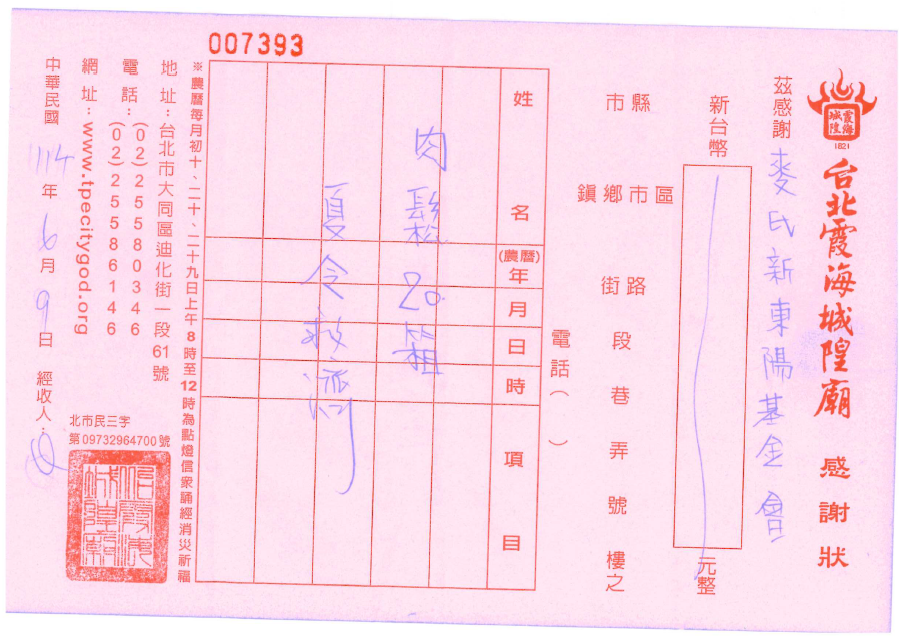 007393
霞海
城隍
1821
台北霞海城隍廟 感謝狀
茲感謝 麥氏新東陽基金會
新台幣 元整
縣市 區市鄉鎮 路街 段 巷 弄 號 樓之
電話( )
姓名 (農曆)年 月 日 時 項目
肉鬆 20 箱
夏令救濟
※農曆每月初十、二十、二十九日上午8時至12時為點燈信眾誦經消災祈福
地址:台北市大同區迪化街一段61號
電話:(02)25580346
(02)25586146
網址:www.tpecitygod.org
中華民國 114 年 6 月 9 日 經收人:
北市民三字
第09732964700號